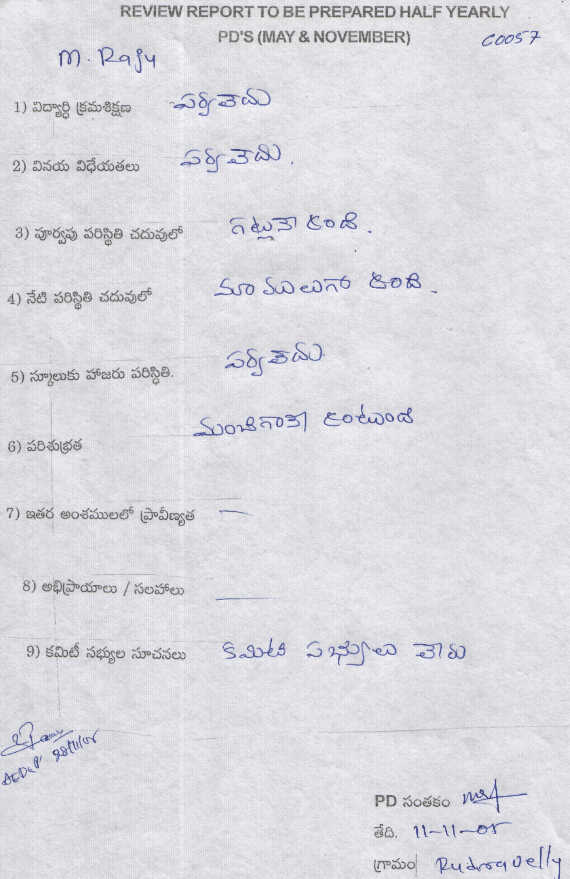 REVIEW REPORT TO BE PREPARED HALF YEARLY
PD'S (MAY & NOVEMBER)
C0057
M. Raju
1) విద్యార్థి క్రమశిక్షణ పర్వాలేదు
2) వినయ విధేయతలు పర్వాలేదు.
3) పూర్వపు పరిస్థితి చదువులో ఉంది.
4) నేటి పరిస్థితి చదువులో మామూలుగా ఉంది.
5) స్కూలుకు హాజరు పరిస్థితి. పర్వాలేదు
6) పరిశుభ్రత మంచిగానే ఉంటుంది
7) ఇతర అంశములలో ప్రావీణ్యత —
8) అభిప్రాయాలు / సలహాలు —
9) కమిటీ సభ్యుల సూచనలు కమిటి సభ్యులు లేరు
PD సంతకం
తేది. 11-11-05
గ్రామం Rudravelly